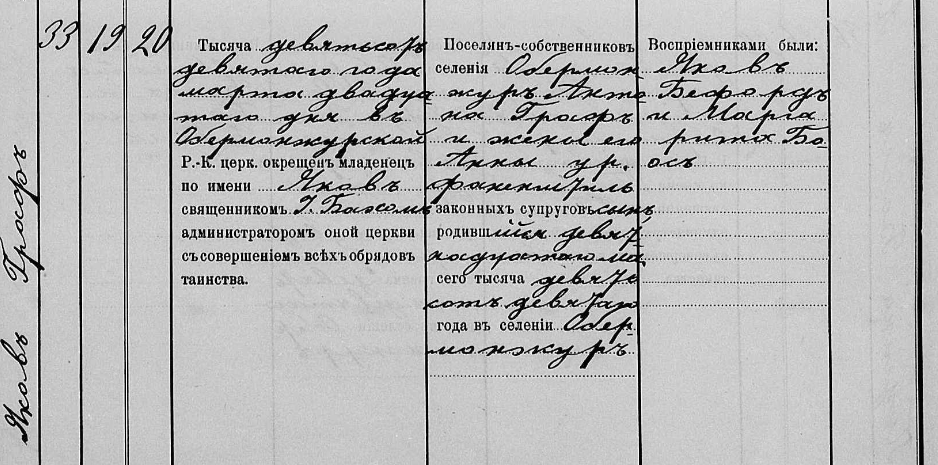 Яковъ Графъ
33 19 20
Тысяча девятьсотъ
девятаго года
марта двадца
таго дня въ
Обермонжурской
Р.-К. церк. окрещенъ младенецъ
по имени Яковъ
священникомъ І. Бахомъ
администраторомъ оной церкви
съ совершеніемъ всѣхъ обрядовъ
таинства.
Поселянъ-собственниковъ
селенія Обермон
журъ Анто
на Графъ
и жены его
Анны ур.
законныхъ супруговъ сынъ,
родившійся девят
надцатаго ма
сего тысяча девять
сотъ девятаго
года въ селеніи Обер
монжуръ
Воспріемниками были:
Яковъ
Бефордъ
и Марга
рита Бо-
осъ